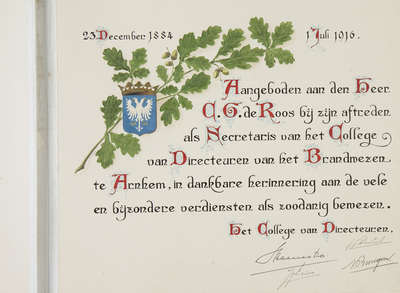 23 December 1884 1 Juli 1916.
Aangeboden aan den Heer
C. G. de Roos bij zijn aftreden
als Secretaris van het College
van Directeuren van het Brandwezen
te Arnhem, in dankbare herinnering aan de vele
en bijzondere verdiensten als zoodanig bewezen.
Het College van Directeuren.